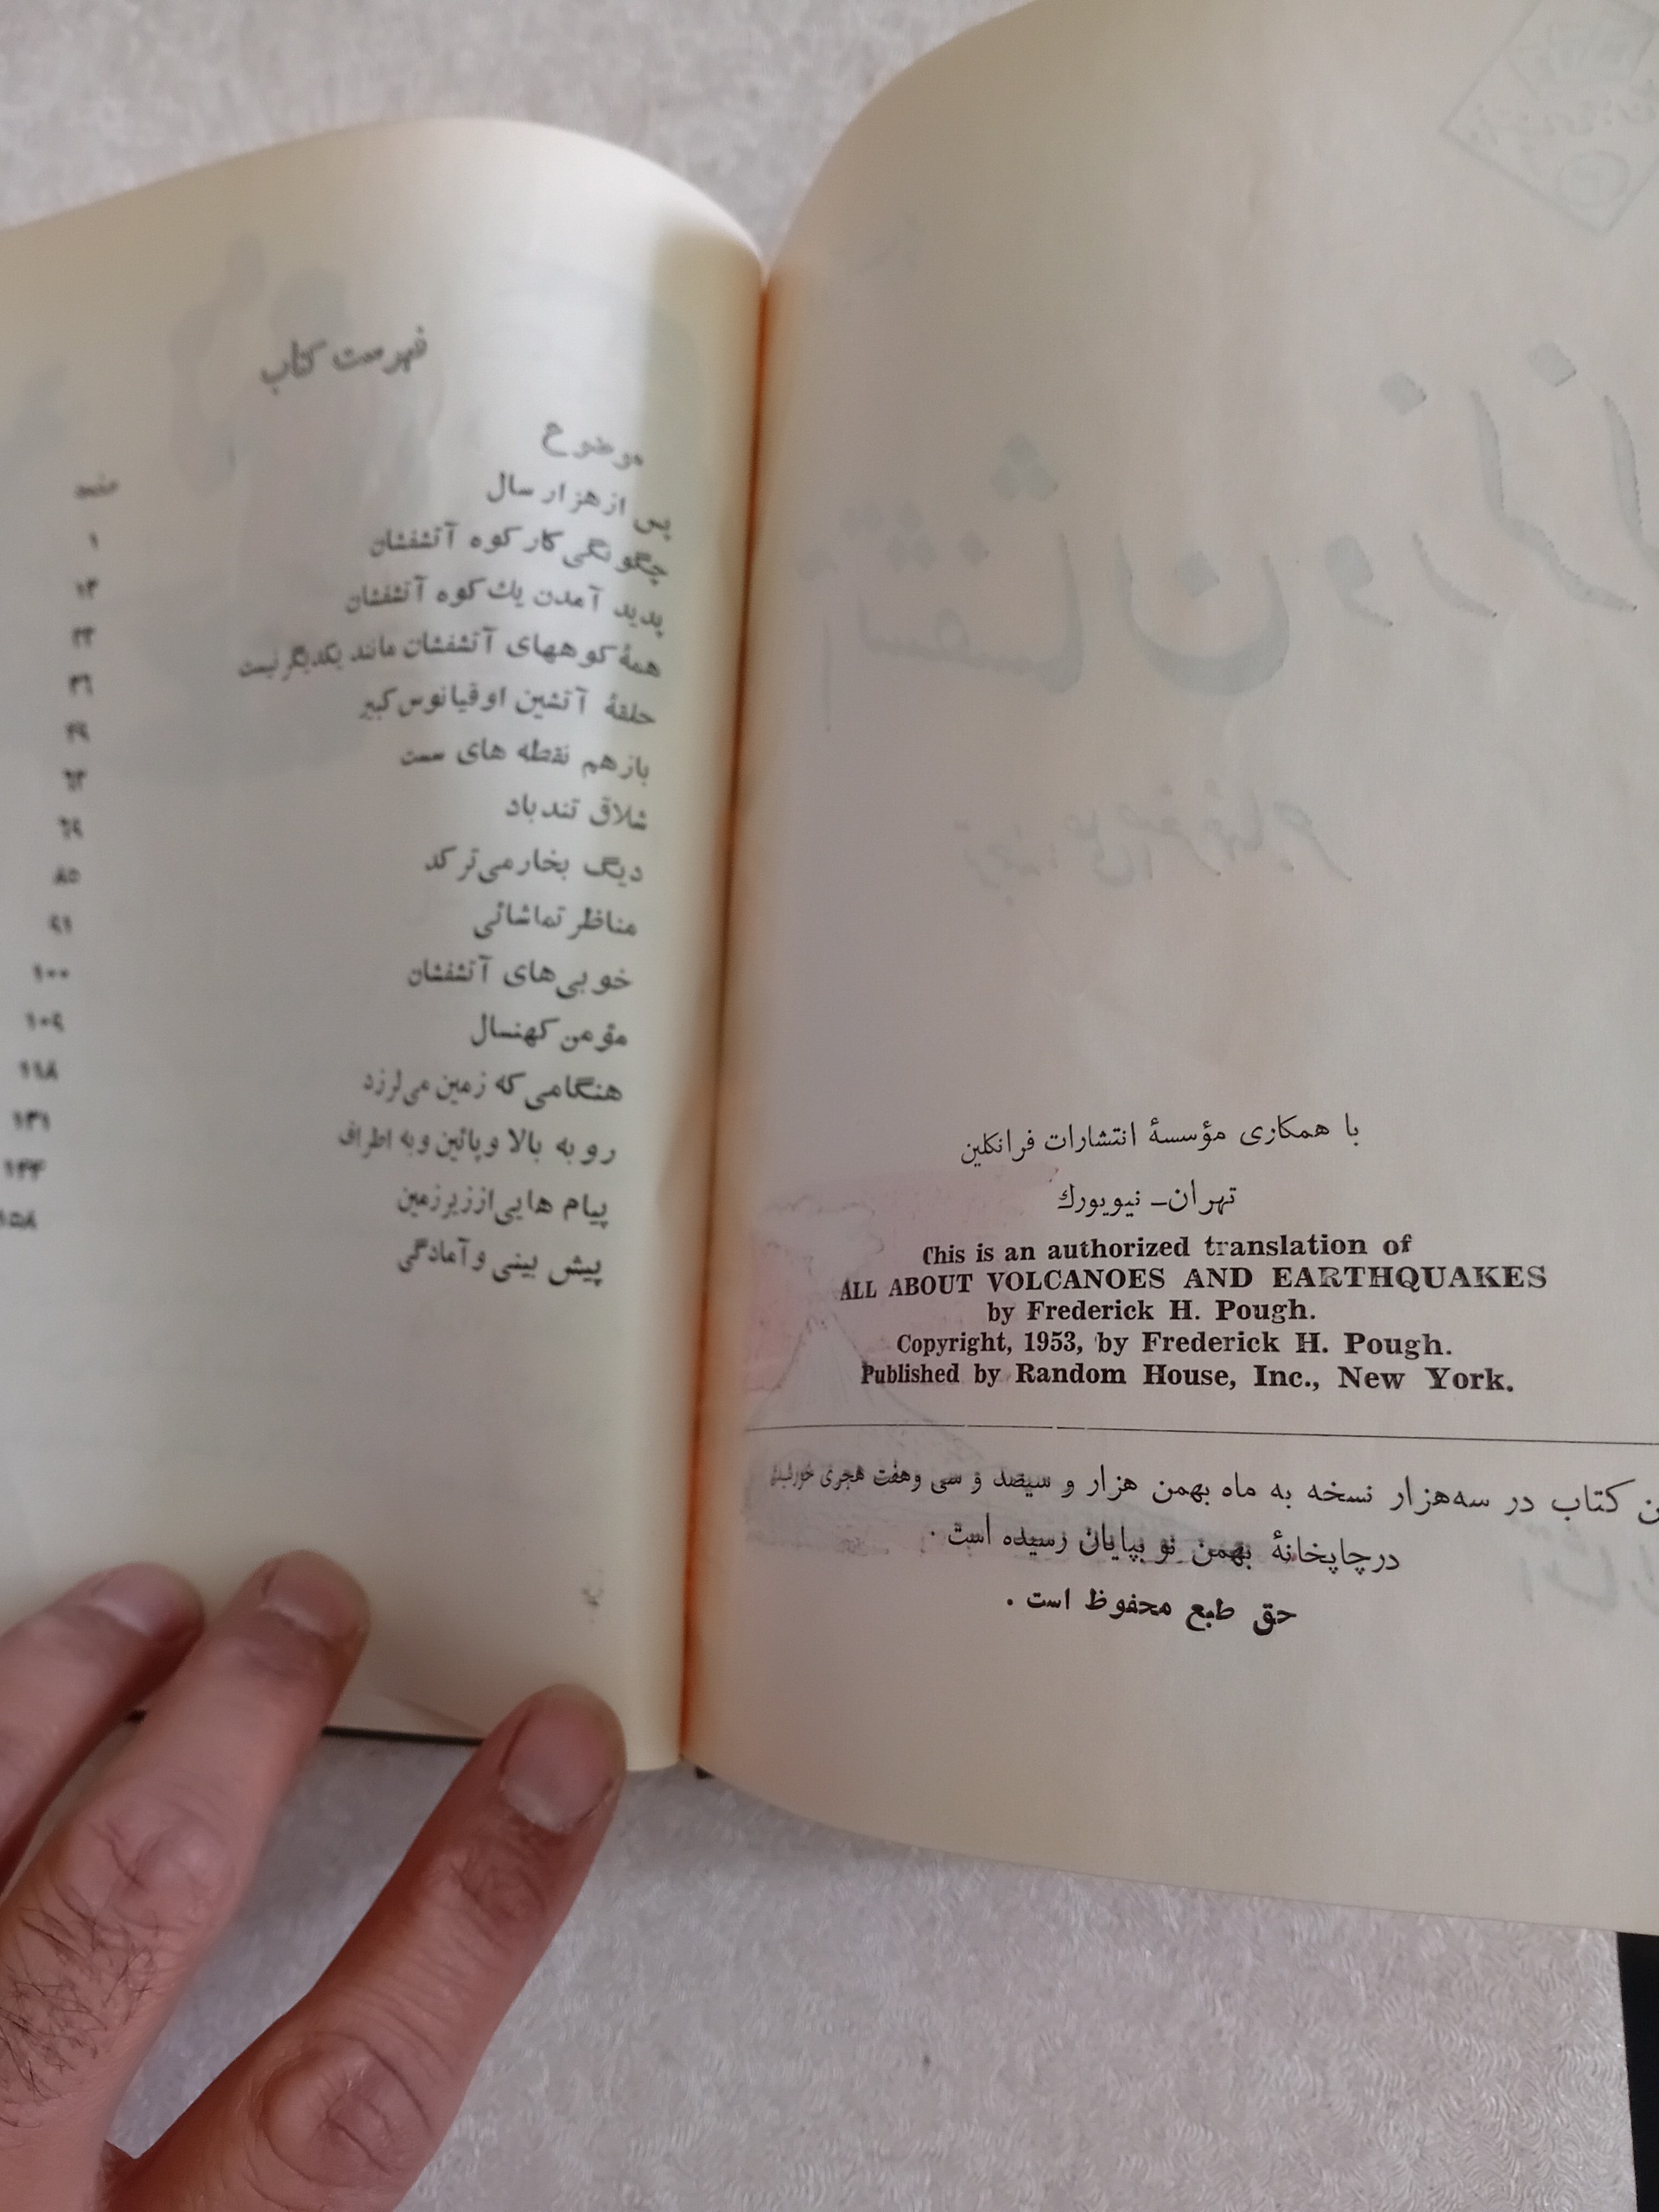 با همکاری مؤسسهٔ انتشارات فرانکلین
تهران- نیویورك
This is an authorized translation of
ALL ABOUT VOLCANOES AND EARTHQUAKES
by Frederick H. Pough.
Copyright, 1953, by Frederick H. Pough.
Published by Random House, Inc., New York.
کتاب در سه‌هزار نسخه به ماه بهمن هزار و سیصد و سی وهفت هجری
درچاپخانهٔ بهمن نو بپایان رسیده است.
حق طبع محفوظ است.
فهرست کتاب
موضوع صفحه
پس ازهزار سال ۱
چگونگی کار کوه آتشفشان ۱۳
پدید آمدن یك کوه آتشفشان
همهٔ کوههای آتشفشان مانند یکدیگر نیست
حلقهٔ آتشین اوقیانوس کبیر
بازهم نقطه های سست
شلاق تندباد
دیگ بخار می‌ترکد ۸۵
مناظر تماشائی ۹۱
خوبی‌های آتشفشان ۱۰۰
مؤمن کهنسال ۱۰۹
هنگامی که زمین می‌لرزد ۱۱۸
رو به بالا وپائین وبه اطراف ۱۳۱
پیام هایی اززیرزمین ۱۴۴
پیش بینی وآمادگی ۱۵۸